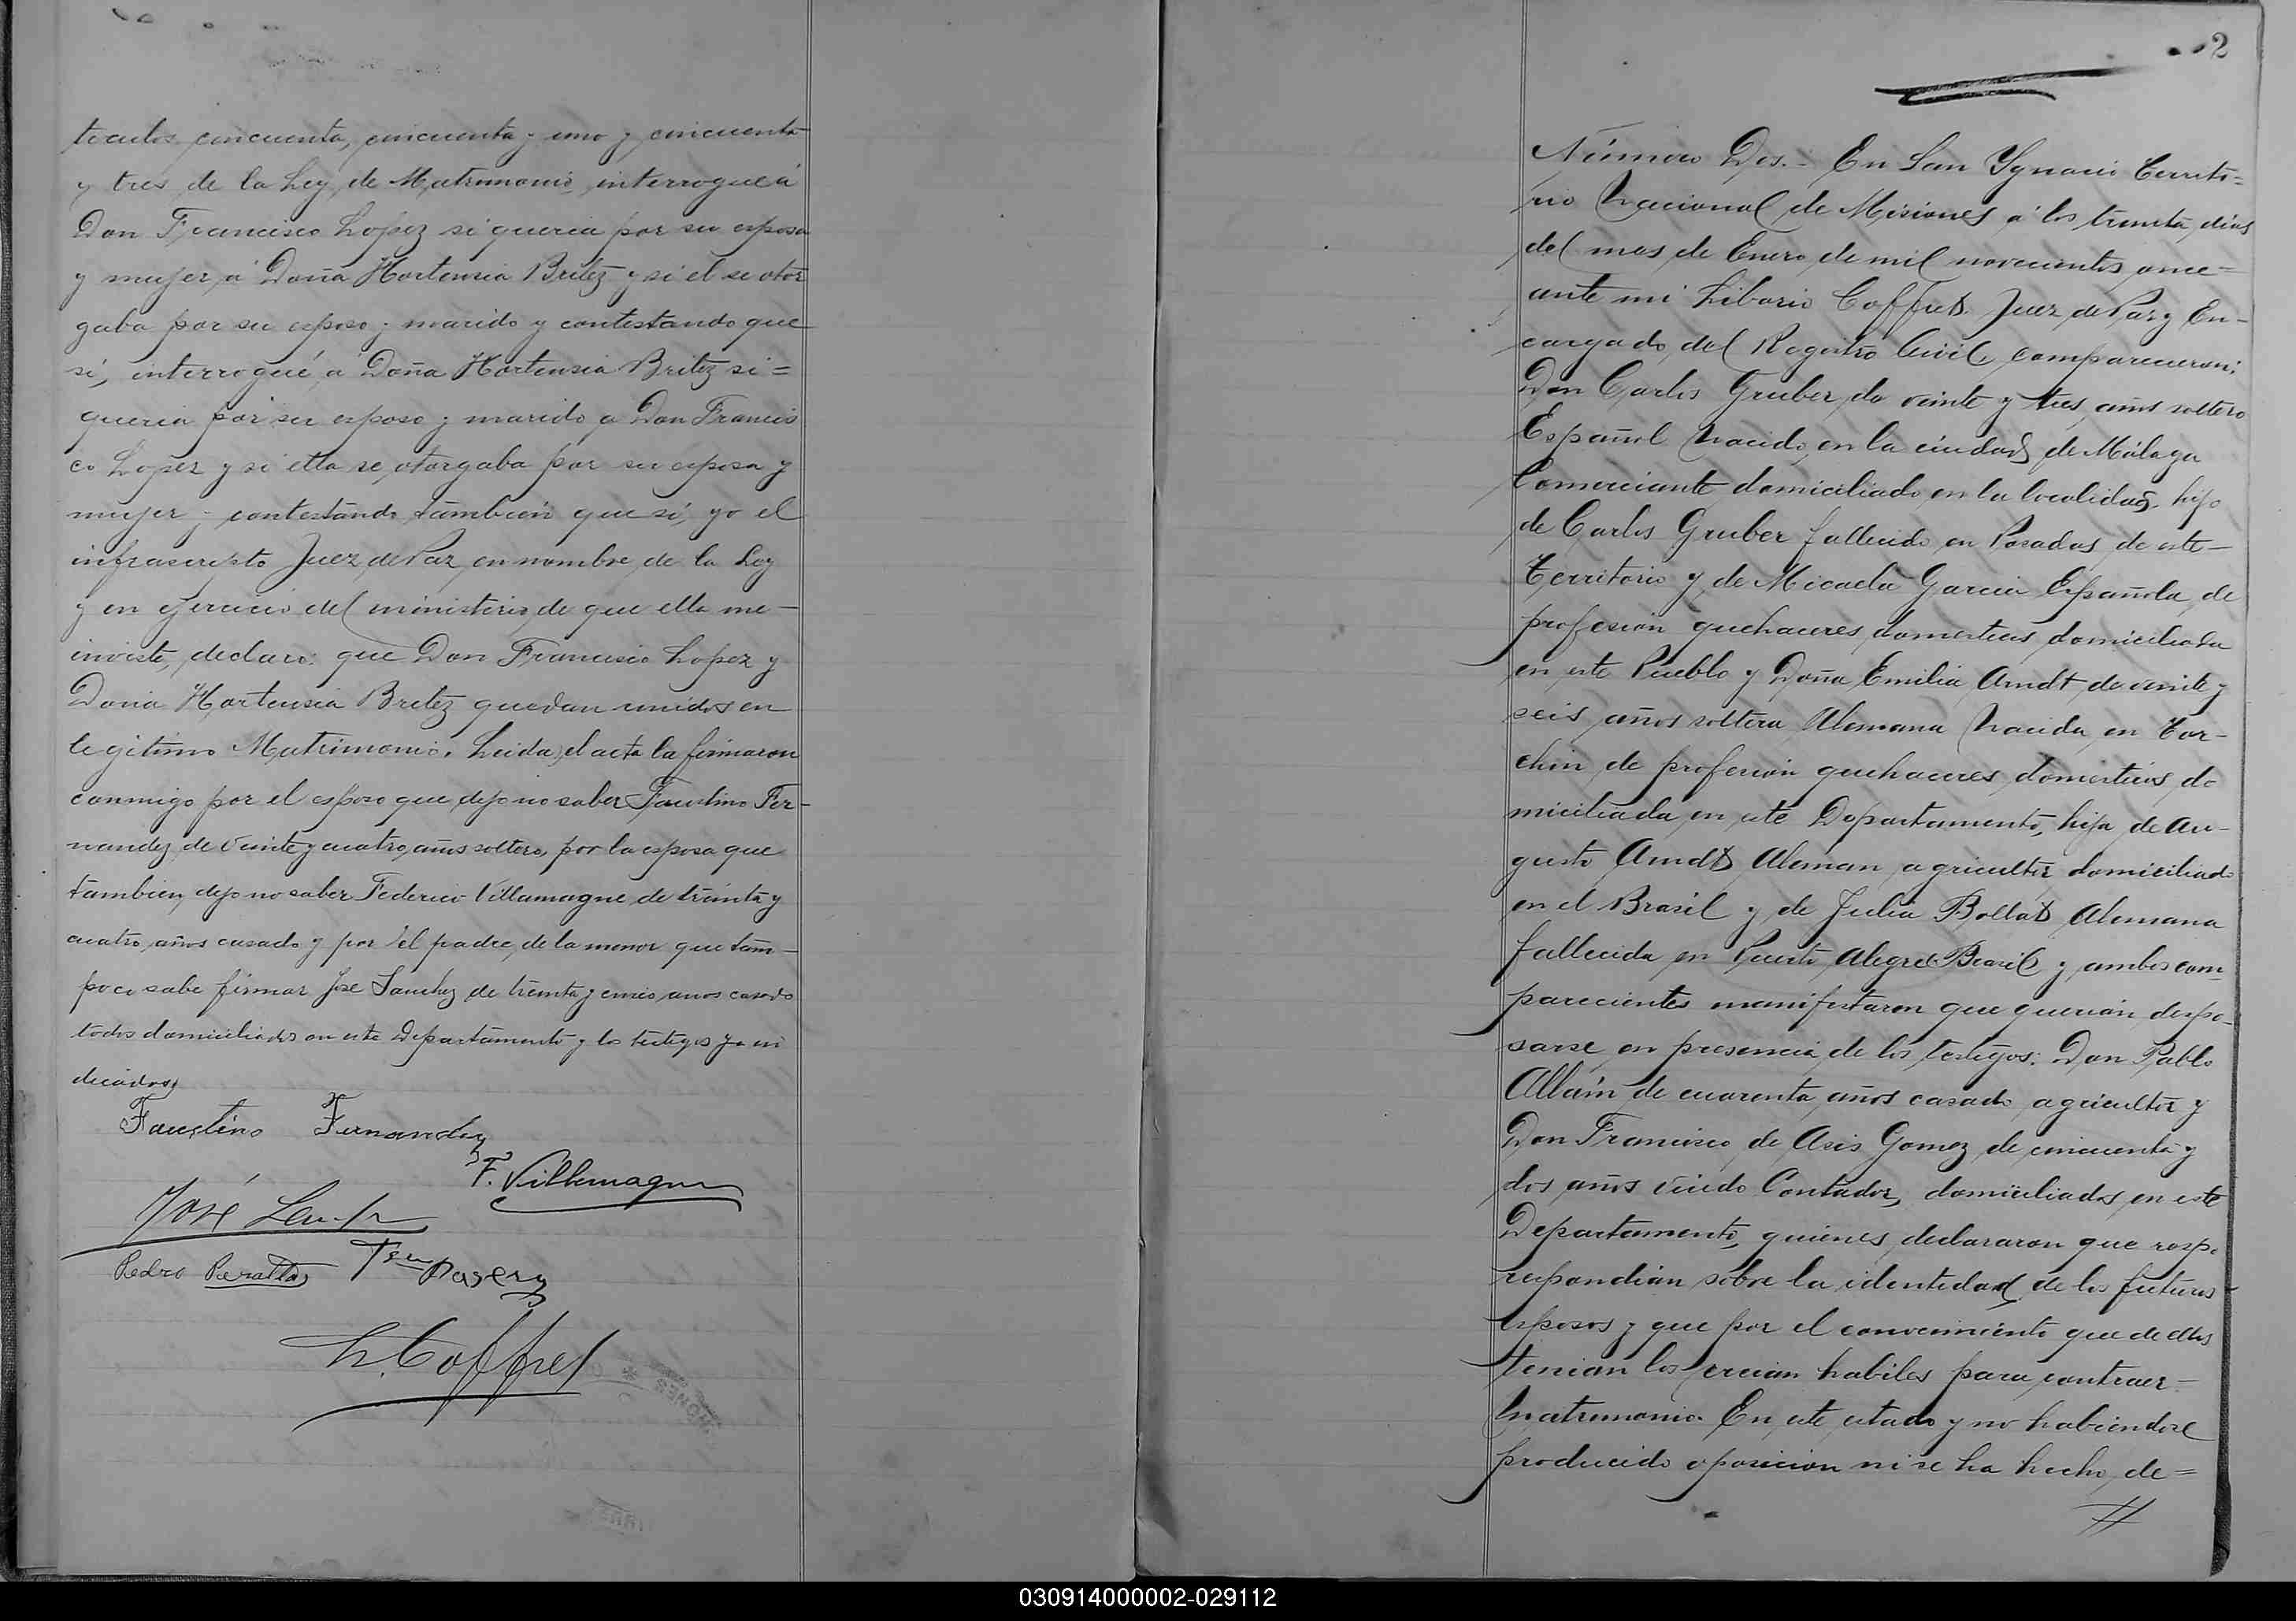 ticulos cincuenta, cincuenta y uno y cincuenta
y tres de la Ley de Matrimonio, interrogué á
Don Francisco Lopez si queria por su esposa
y mujer á Doña Hortensia Britez y si él se otor
gaba por su esposo y marido y contestando que
si, interrogué á Doña Hortensia Britez si =
queria por su esposo y marido a Don Francis
co Lopez y si ella se otorgaba por su esposa y
mujer y contestando tambien que si, yo el
infrascripto Juez de Paz en nombre de la Ley
y en ejercicio del ministerio de que ella me -
inviste, declaro: que Don Francisco Lopez y
Doña Hortensia Britez quedan unidos en
legitimo Matrimonio. Leida el acta la firmaron
conmigo por el esposo que dijo no saber Faustino Fer-
nandez de veinte y cuatro años soltero, por la esposa que
tambien dijo no saber Federico Villamagne de treinta y
cuatro años casado y por el padre de la menor que tam-
poco sabe firmar José Sanchez de treinta y cinco años casado
todos domiciliados en este Departamento y los testigos ya in
dicados
Faustino Fernandez
F. Villemagne
José
Pedro Peralta
L. Coffret
2
Número Dos.- En San Ygnacio Territo=
rio Nacional de Misiones á los treinta dias
del mes de Enero de mil novecientos once =
ante mi Liborio Coffret Juez de Paz y En-
cargado del Registro Civil, comparecieron:
Don Carlos Gruber de veinte y tres años soltero
Español nacido en la ciudad de Málaga
Comerciante domiciliado en la localidad hijo
de Carlos Gruber fallecido en Posadas de este -
Territorio y de Micaela Garcia Española de
profesion quehaceres domesticos domiciliada
en este Pueblo y Doña Emilia Arndt de veinte y
seis años soltera Alemana nacida en Tor-
chin de profesion quehaceres domesticos do
miciliada en este Departamento, hija de Au-
gusto Arndt Aleman agricultor domiciliado
en el Brasil y de Julia Bollat Alemana
fallecida en Puerto Alegre Brasil y ambos com
parecientes manifestaron que querian despo-
sarse en presencia de los testigos: Don Pablo
Allain de cuarenta años casado agricultor y
Don Francisco de Asis Gomez de cincuenta y
dos años viudo Contador, domiciliados en este
Departamento, quienes declararon que resp
respondian sobre la identidad de los futuros
esposos y que por el conocimiento que de ellos
tenian los creian habiles para contraer -
matrimonio. En este estado y no habiendose
producido oposicion ni se ha hecho de=
030914000002-029112